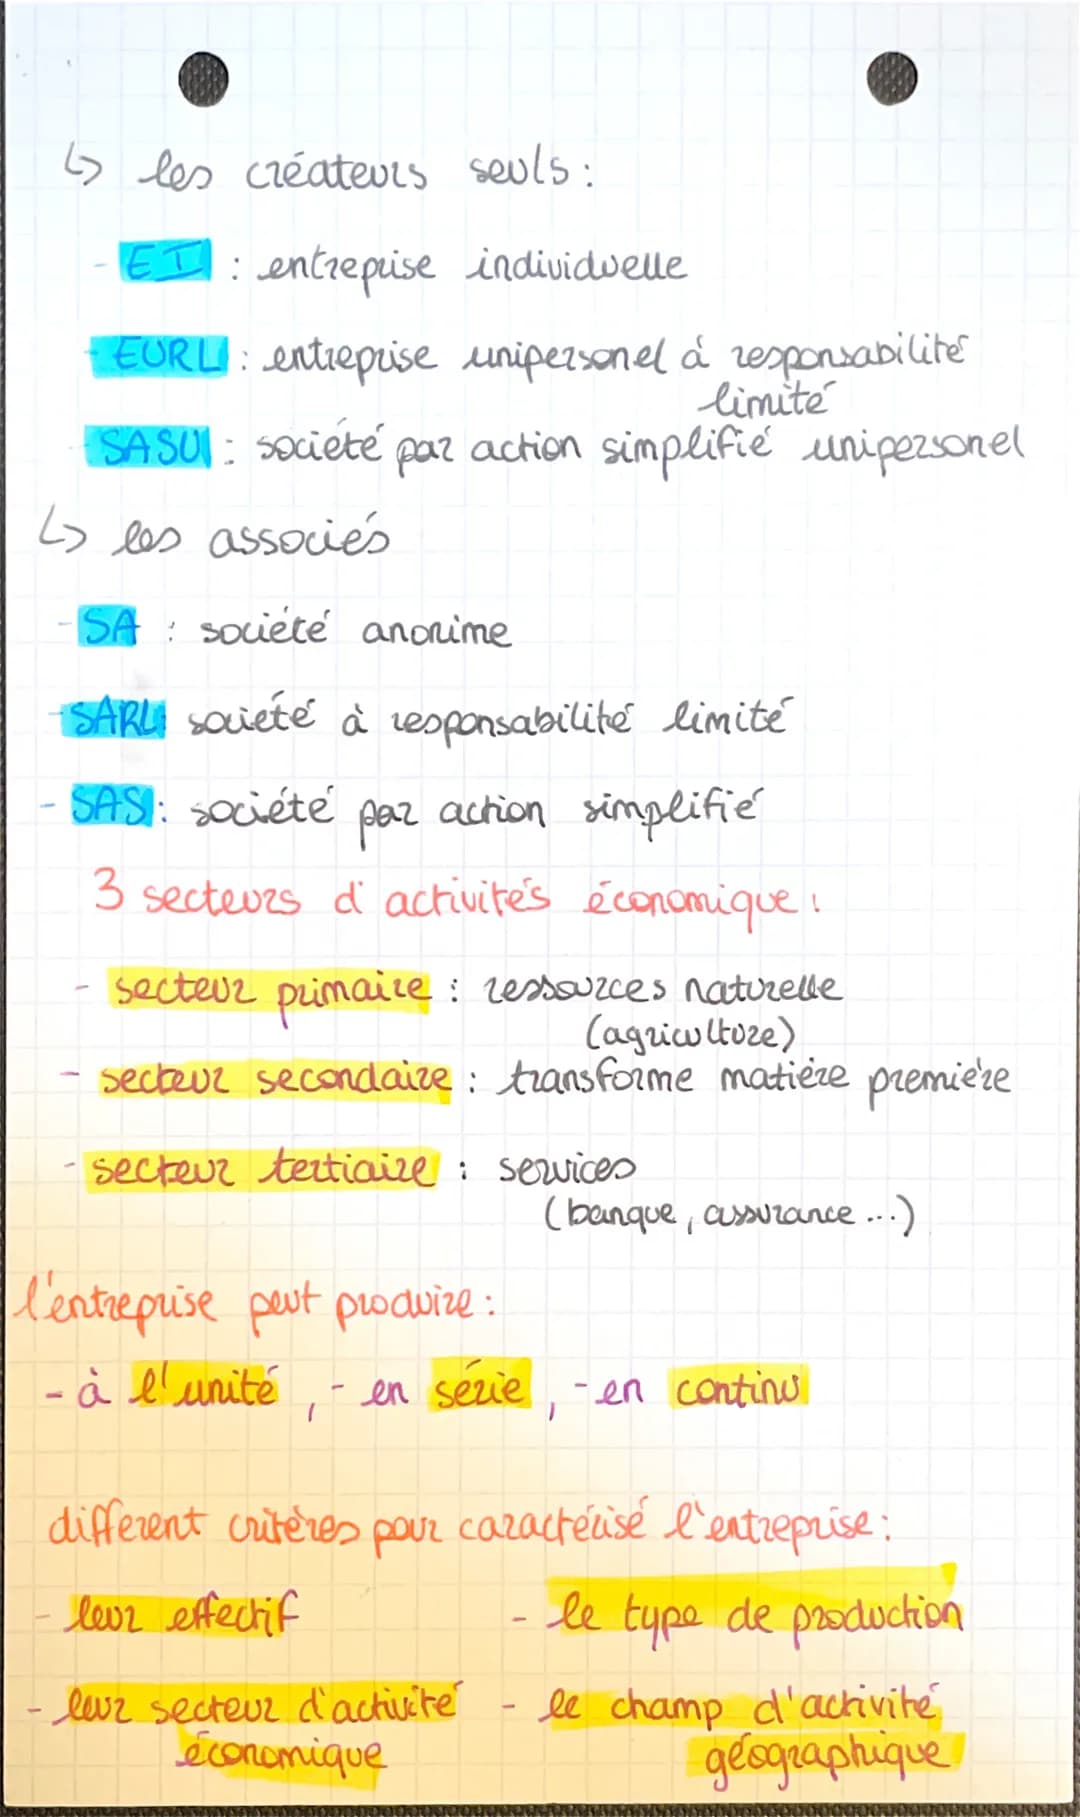 ↳ les créateurs seuls :
- EI : entreprise individuelle
- EURL : entreprise unipersonel à responsabilité
limité
- SASU : société par action simplifié unipersonel
↳ les associés
- SA : société anonime
- SARL : société à responsabilité limité
- SAS : société par action simplifié
3 secteurs d'activités économique :
- secteur primaire : ressources naturelle
(agriculture)
- secteur secondaire : transforme matière première
- secteur tertiaire : services
(banque, assurance ...)
l'entreprise peut produire :
- à l'unité, - en série, - en continu
different critères pour caractérisé l'entreprise :
- leur effectif - le type de production
- leur secteur d'activité - le champ d'activité
économique géographique